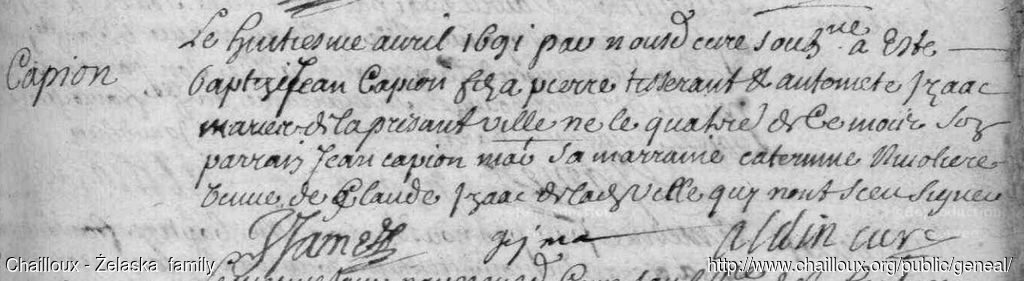 Le huitiesme auril 1691 par nousd cure soubz.ne a Este
Capion
baptize Jean Capion fhz a pierre tisserant & antoinete Izaac
mariez de la presant ville ne le quatre de ce mois Son
parrain Jean capion sa marraine caterinne
veuve de Claude Izaac de lad ville quy nont Sceu signer
cure
Chailloux - Želaska family
http://www.chailloux.org/public/geneal/